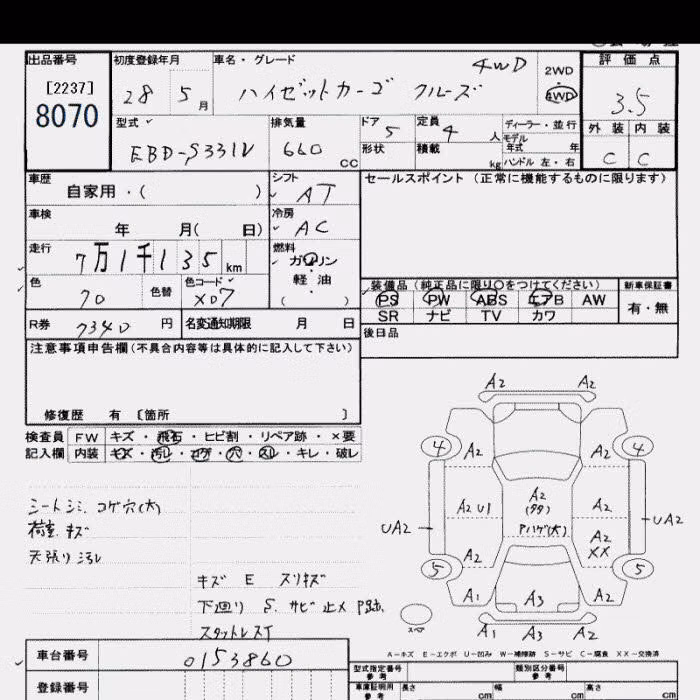 出品番号 初度登録年月 車名・グレード 評価点
[2237] 8070 28 5月 ハイゼットカーゴ クルーズ 4WD 2WD 4WD 3.5
外装 内装
C C
型式 EBD-S331V 排気量 660 CC ドア 5 定員 4人 ディーラー・並行
形状 積載 kg モデル年式 年
ハンドル 左・右
車歴 自家用・( ) シフト AT セールスポイント (正常に機能するものに限ります)
車検 年 月( 日) 冷房 AC
走行 7万1千135km 燃料 ガソリン・軽油 ( )
色 70 色替 色コード X07 装備品(純正品に限り○をつけてください) 新車保証書
PS PW ABS エアB AW 有・無
SR ナビ TV カワ
R券 7340 円 名変通知期限 月 日 後日品
注意事項申告欄(不具合内容等は具体的に記入して下さい)
修復歴 有 〔箇所 〕
検査員 FW キズ・飛石・ヒビ割・リペア跡・×要
記入欄 内装 キズ・汚レ・コゲ・穴・スレ・キレ・破レ
A2 A2
4 4
A2 A2
A2 U1 A2 A2
UA2 Pハゲ(大) UA2
A2 A2
XX
5 5
A1 A3 A2
スペア A1 A3 A2
シートシミ、コゲ穴(大)
荷室キズ
天張り汚レ
キズ E スリキズ
下廻り S. サビ止メ P跡
スタットレスイ
A－キズ E－エクボ U－凹み W－補修跡 S－サビ C－腐食 XX－交換済
車台番号 0153860 型式指定番号 参考 類別区分番号 参考
登録番号 車庫証明用 参考 長さ cm 幅 cm 高さ cm